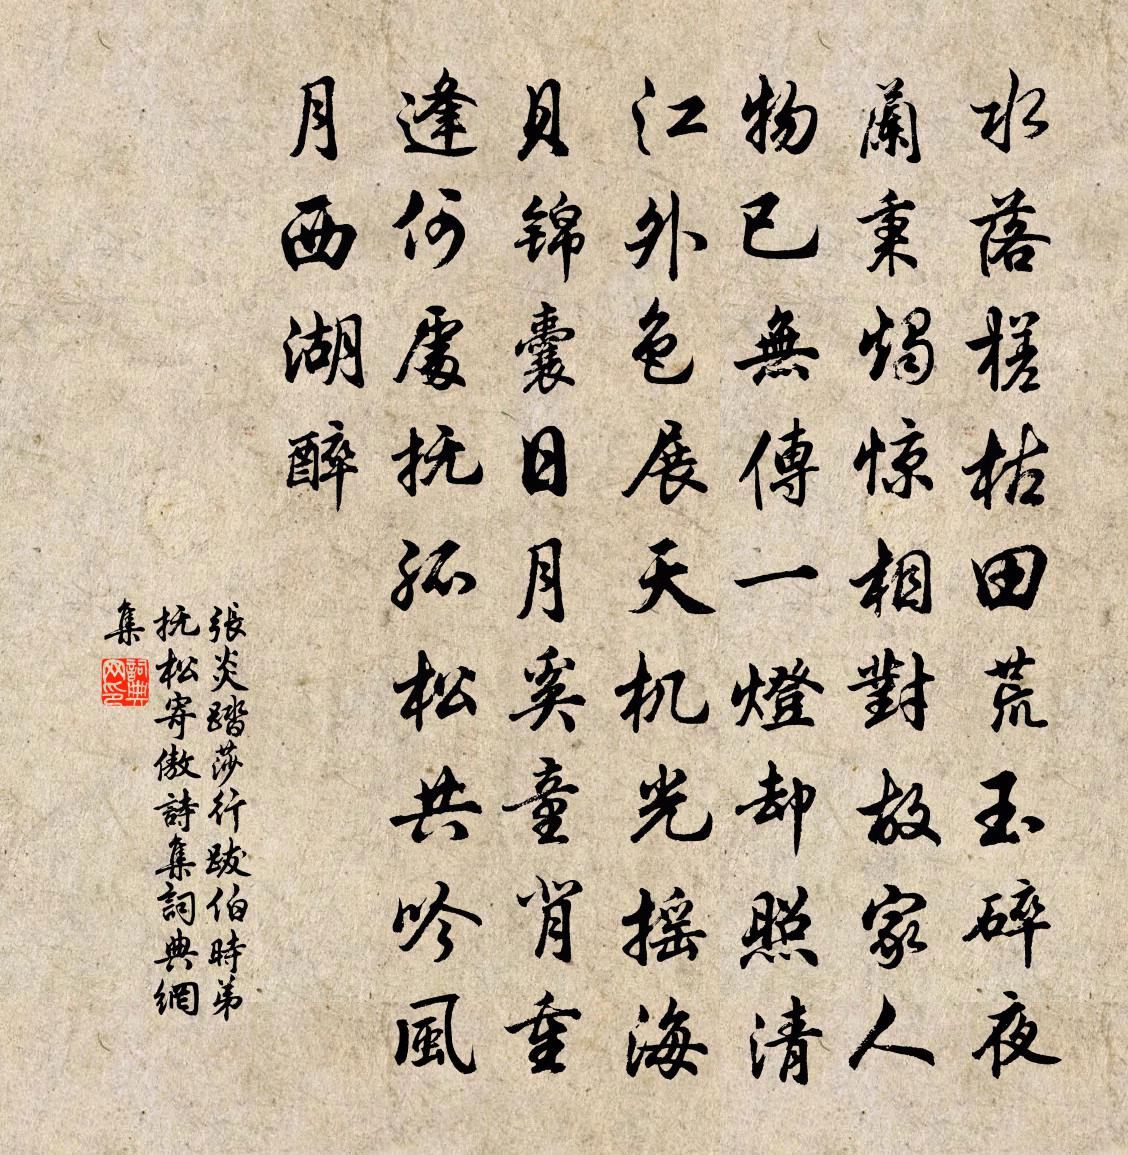 水落槎枯田荒玉碎夜
蘭秉燭惊相對故家人
物已無傳一燈却照清
江外色展天机光摇海
貝锦囊日月奚童背重
逢何處抚孤松共吟風
月西湖醉
張炎踏莎行跋伯時弟
抚松寄傲詩集詞典網
集
詞典网印